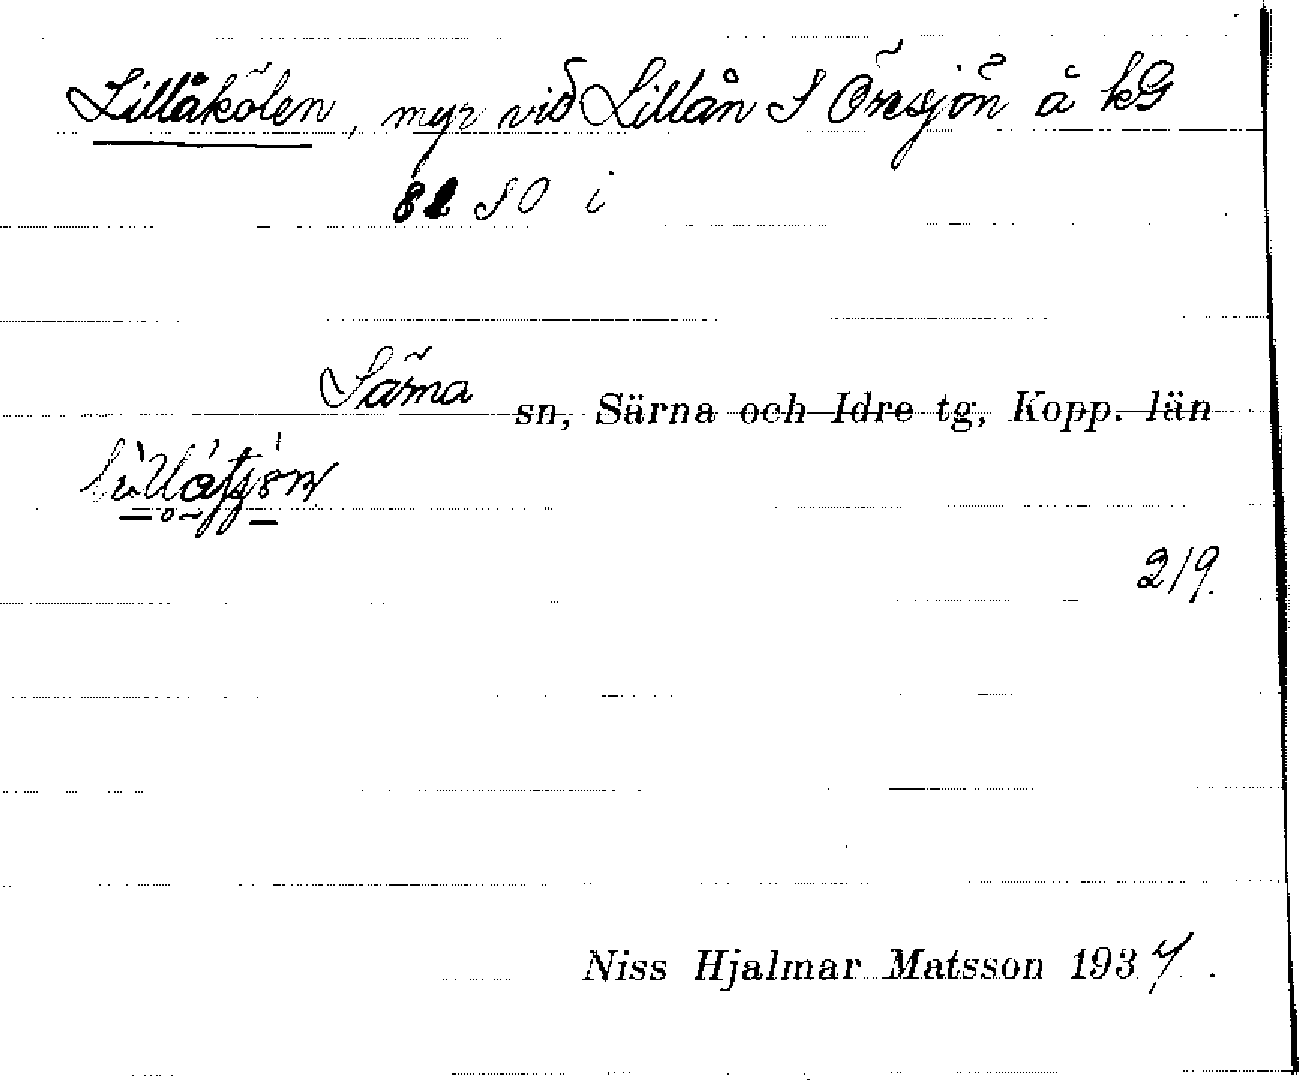 Lillåkölen, myr vid Lillån S Örnsjön å kG
82 SO i
Särna sn, Särna och Idre tg, Kopp. län
219.
Niss Hjalmar Matsson 1937.